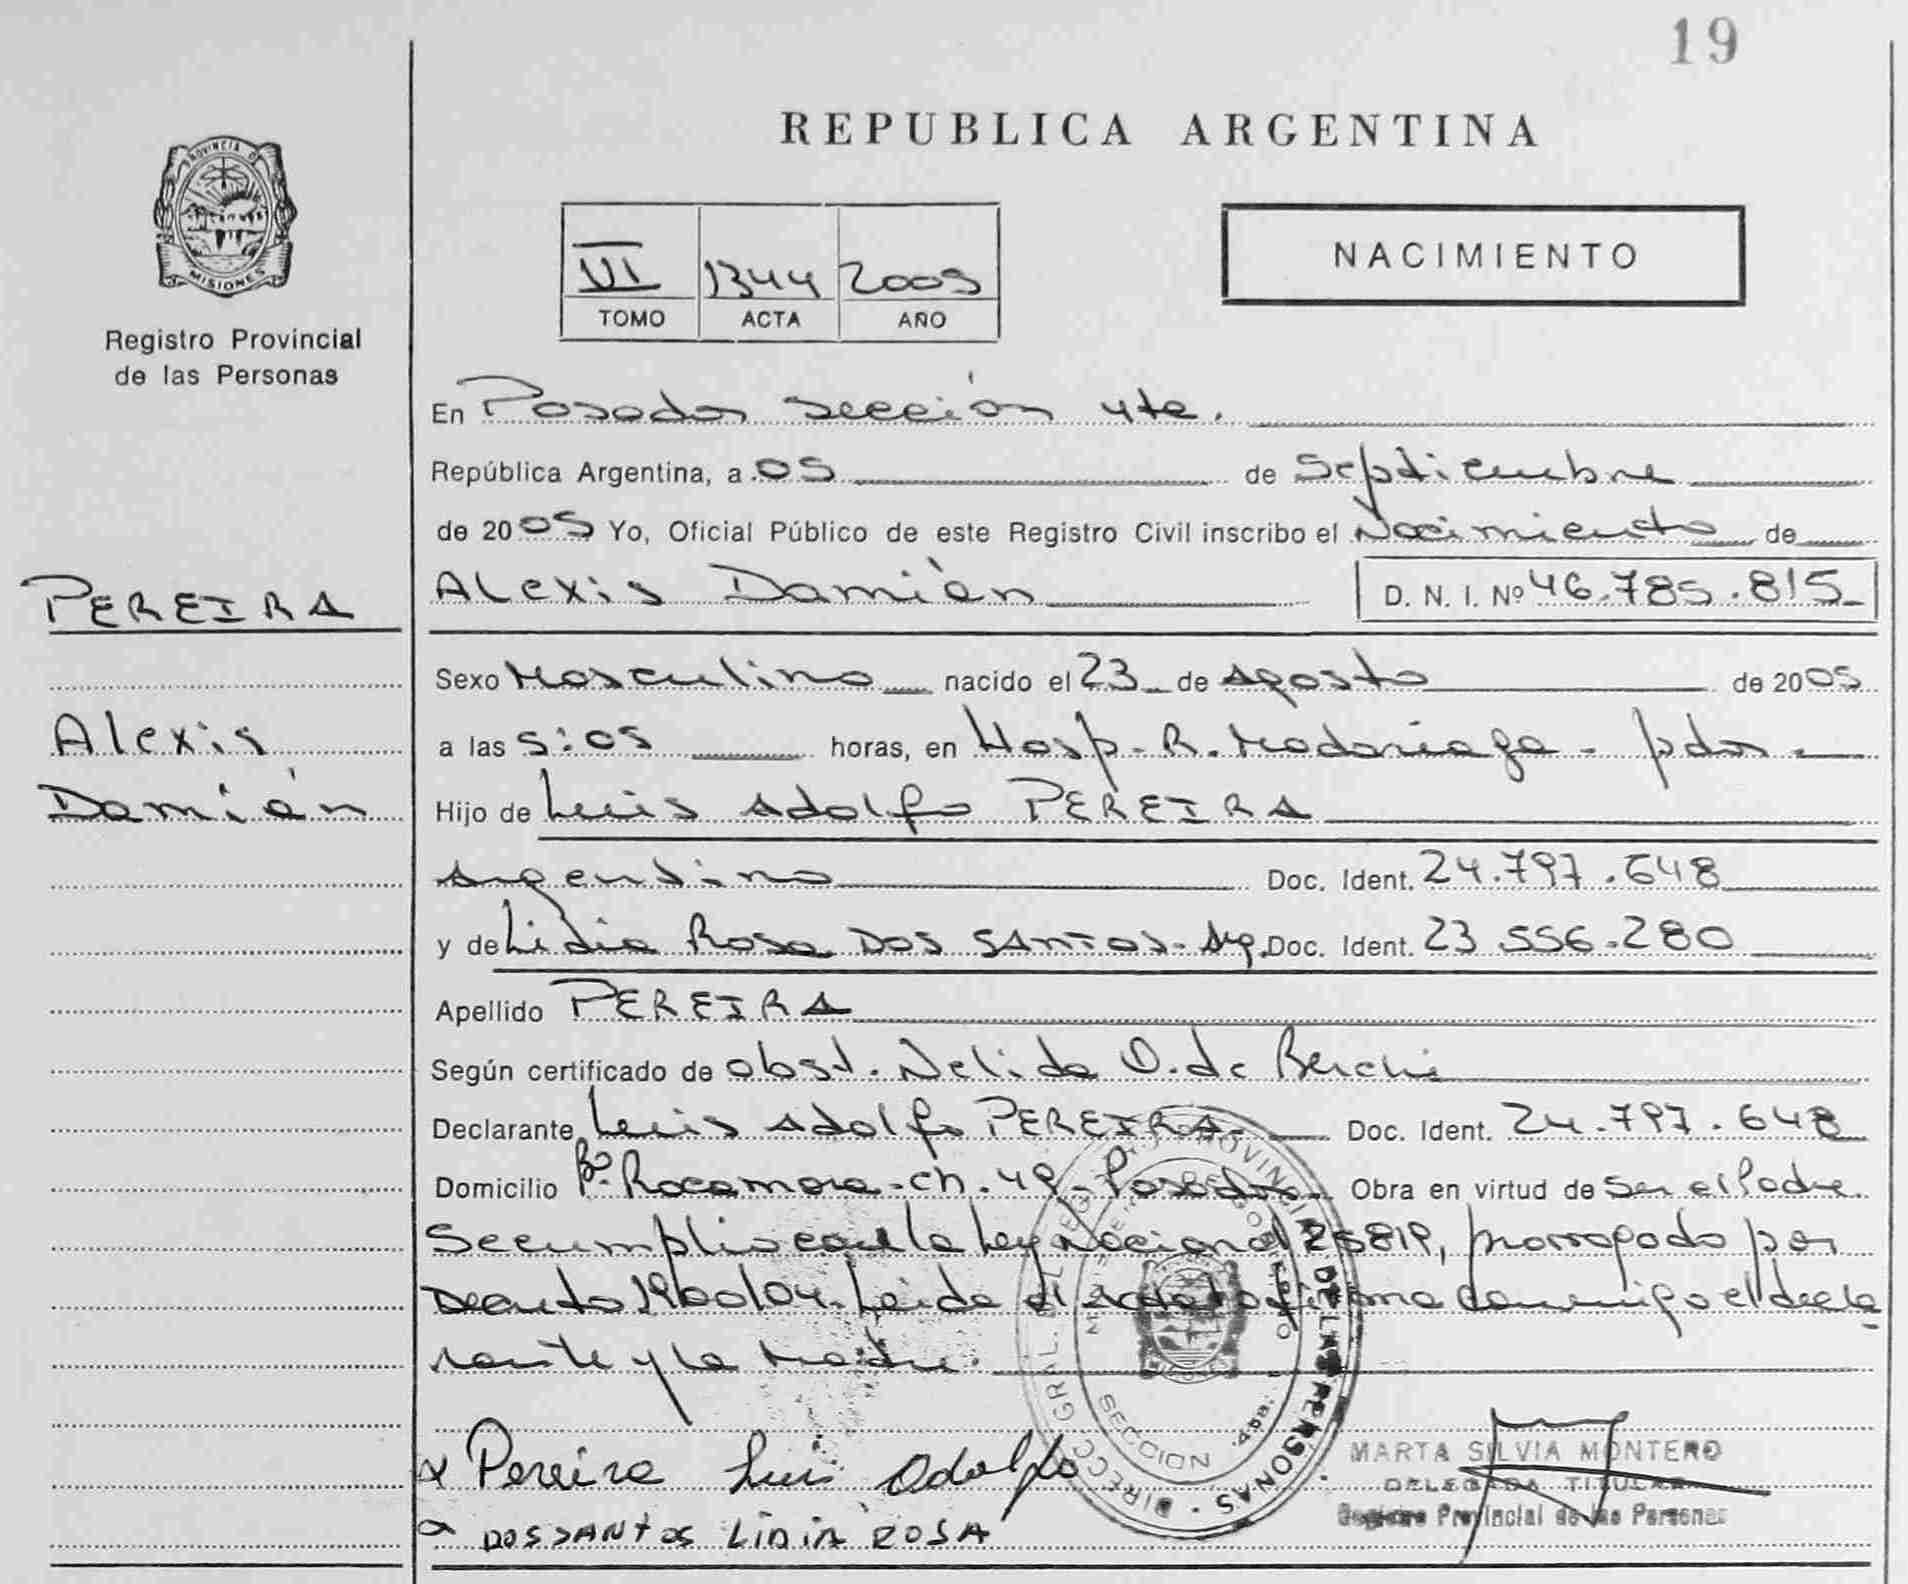 19
REPUBLICA ARGENTINA
PROVINCIA DE
MISIONES
Registro Provincial
de las Personas
VI 1344 2005
TOMO ACTA AÑO
NACIMIENTO
En Posadas sección 4ta.
República Argentina, a 05 de Septiembre
de 2005 Yo, Oficial Público de este Registro Civil inscribo el Nacimiento de
PEREIRA
Alexis Damián D. N. I. Nº 46.785.815
Sexo Masculino nacido el 23 de Agosto de 2005
Alexis
a las 5:05 horas, en Hosp. R. Madariaga - pdas -
Damián
Hijo de Luis Adolfo PEREIRA
Argentino Doc. Ident. 24.797.648
y de Lidia Rosa DOS SANTOS - Arg. Doc. Ident. 23.556.280
Apellido PEREIRA
Según certificado de obst. Nelida O. de
Declarante Luis Adolfo PEREIRA Doc. Ident. 24.797.648
Domicilio Bº Rocamora - ch. 49 - Posadas Obra en virtud de ser el Padre.
Se cumplio con la Ley Nacional 25819, prorrogado por
Decreto 1900/04. Leida el acta la firma conmigo el decla
rante y la Madre.
DIRECC. GRAL. DEL REG. PROVINCIAL DE LAS PERSONAS
MINISTERIO DE GOBIERNO
SECCION 4ta.
x Pereira Luis Adolfo
DOS SANTOS LIDIA ROSA
MARTA SILVIA MONTERO
DELEGADA TITULAR
Registro Provincial de las Personas